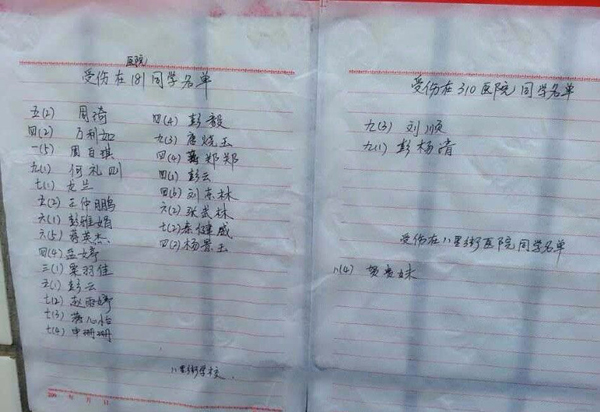 医院
受伤在181同学名单
五(2) 周琦
四(2) 万利如
一(5) 周自琪
九(1) 何礼则
七(1) 龙兰
五(2) 左仲鹏
六(1) 彭雅娟
六(5) 蒋英杰
四(4) 孟婷
三(1) 粟羽佳
五(1) 彭云
七(2) 赵雨婷
七(3) 蒋心怡
七(4) 申珊珊
四(4) 彭毅
九(3) 唐烧玉
四(4) 蒋郑郑
四(6) 彭云
四(6) 刘东林
六(2) 张武林
七(2) 秦健威
四(2) 杨景玉
八里街学校.
年 月 日
受伤在310医院同学名单
九(3) 刘顺
九(1) 彭杨清
受伤在八里街医院同学名单
八(4) 贺贵妹